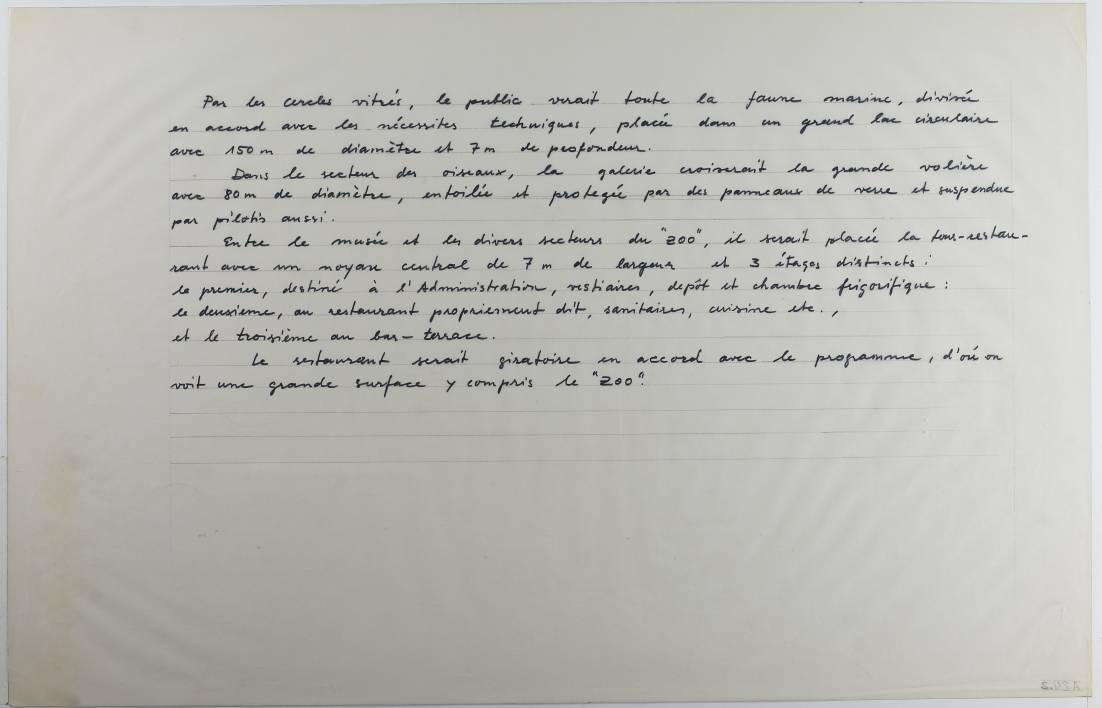 Par les cercles vitrés, le public verait toute la faune marine, divisée
en accord avec les nécessites techniques, placée dans un grand lac circulaire
avec 150 m de diamètre et 7 m de profondeur.
Dans le secteur des oiseaux, la galerie croiserait la grande volière
avec 80 m de diamètre, entoilée et protegée par des panneaux de verre et suspendue
par pilotis aussi.
Entre le musée et les divers secteurs du "ZOO", il serait placée la tour-restau-
rant avec un noyau central de 7 m de largeur et 3 étages distincts:
le premier, destiné à l'Administration, vestiaires, depôt et chambre frigorifique:
le deuxieme, au restaurant propriement dit, sanitaires, cuisine etc.,
et le troisième au bar-terrace.
Le restaurant serait giratoire en accord avec le programme, d'où on
voit une grande surface y compris le "ZOO".